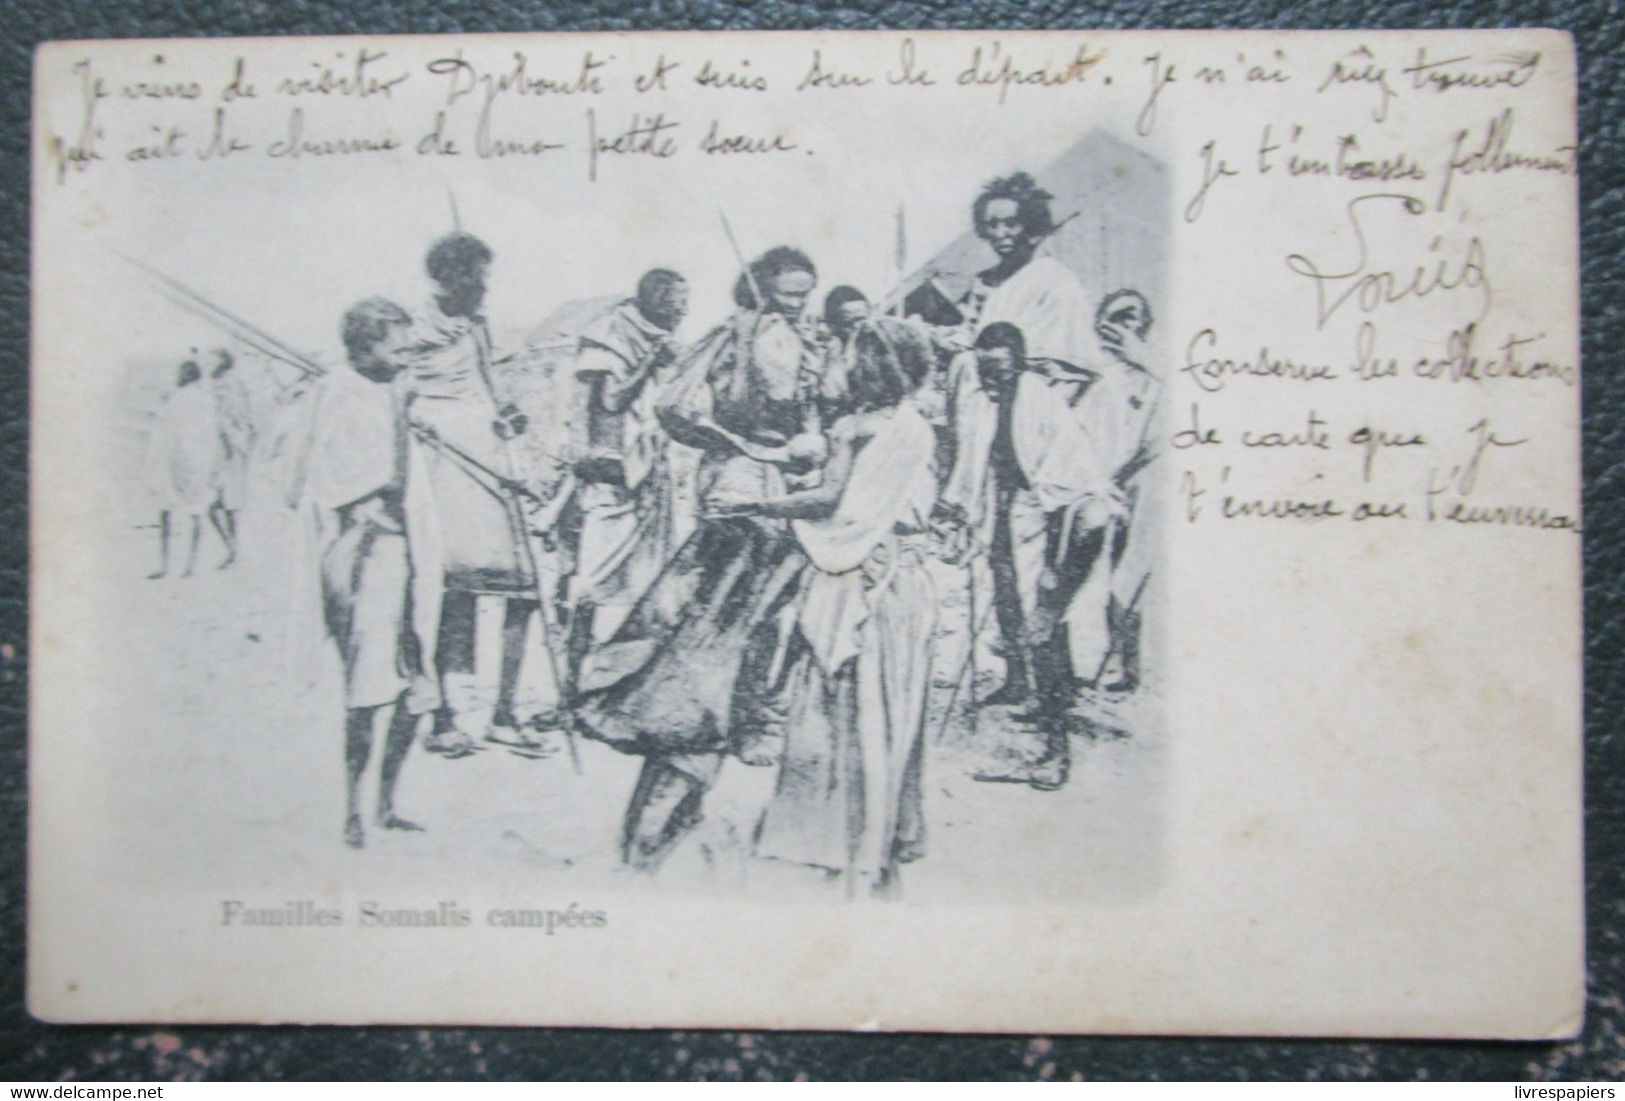 Je viens de visiter Djibouti et suis sur le départ. Je n'ai rien trouvé
qui ait le charme de ma petite soeur.
Je t'embrasse follement
Louis
Conserve les collections
de carte que je
t'envoie ou t'emmenai
Familles Somalis campées
livrespapiers